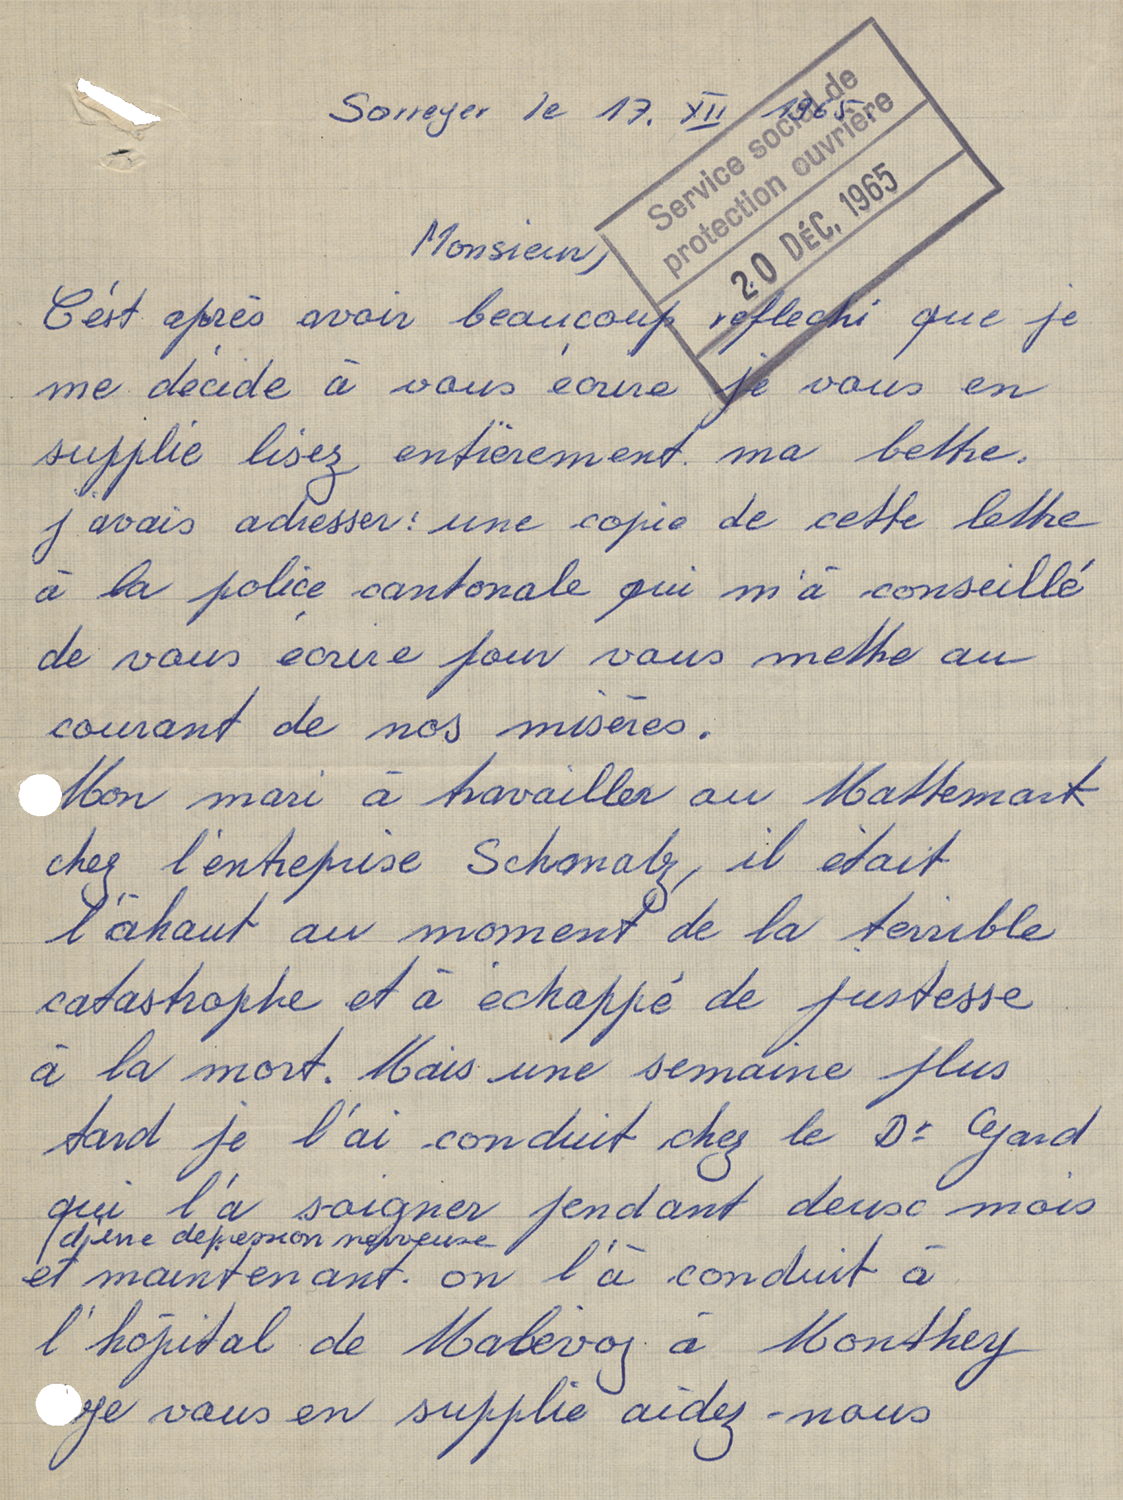 Sorreyer le 17. XII 1965.
Service social de
protection ouvrière
20 DÉC. 1965
Monsieur,
C'ést après avoir beaucoup reflechi que je
me décide à vous écrire je vous en
supplie lisez entièrement. ma lettre.
j'avais adresser: une copie de cette lettre
à la police cantonale qui m'à conseillé
de vous écrire pour vous mettre au
courant de nos misères.
Mon mari à travailler au Mattemart
chez l'entreprise Schmalz, il était
l'àhaut au moment de la terrible
catastrophe et à échappé de justesse
à la mort. Mais une semaine plus
tard je l'ai conduit chez le Dr Gard
qui l'a soigner pendant deux mois
(d'une depression nerveuse
et maintenant. on l'à conduit à
l'hôpital de Malévoz à Monthey
je vous en supplie aidez-nous